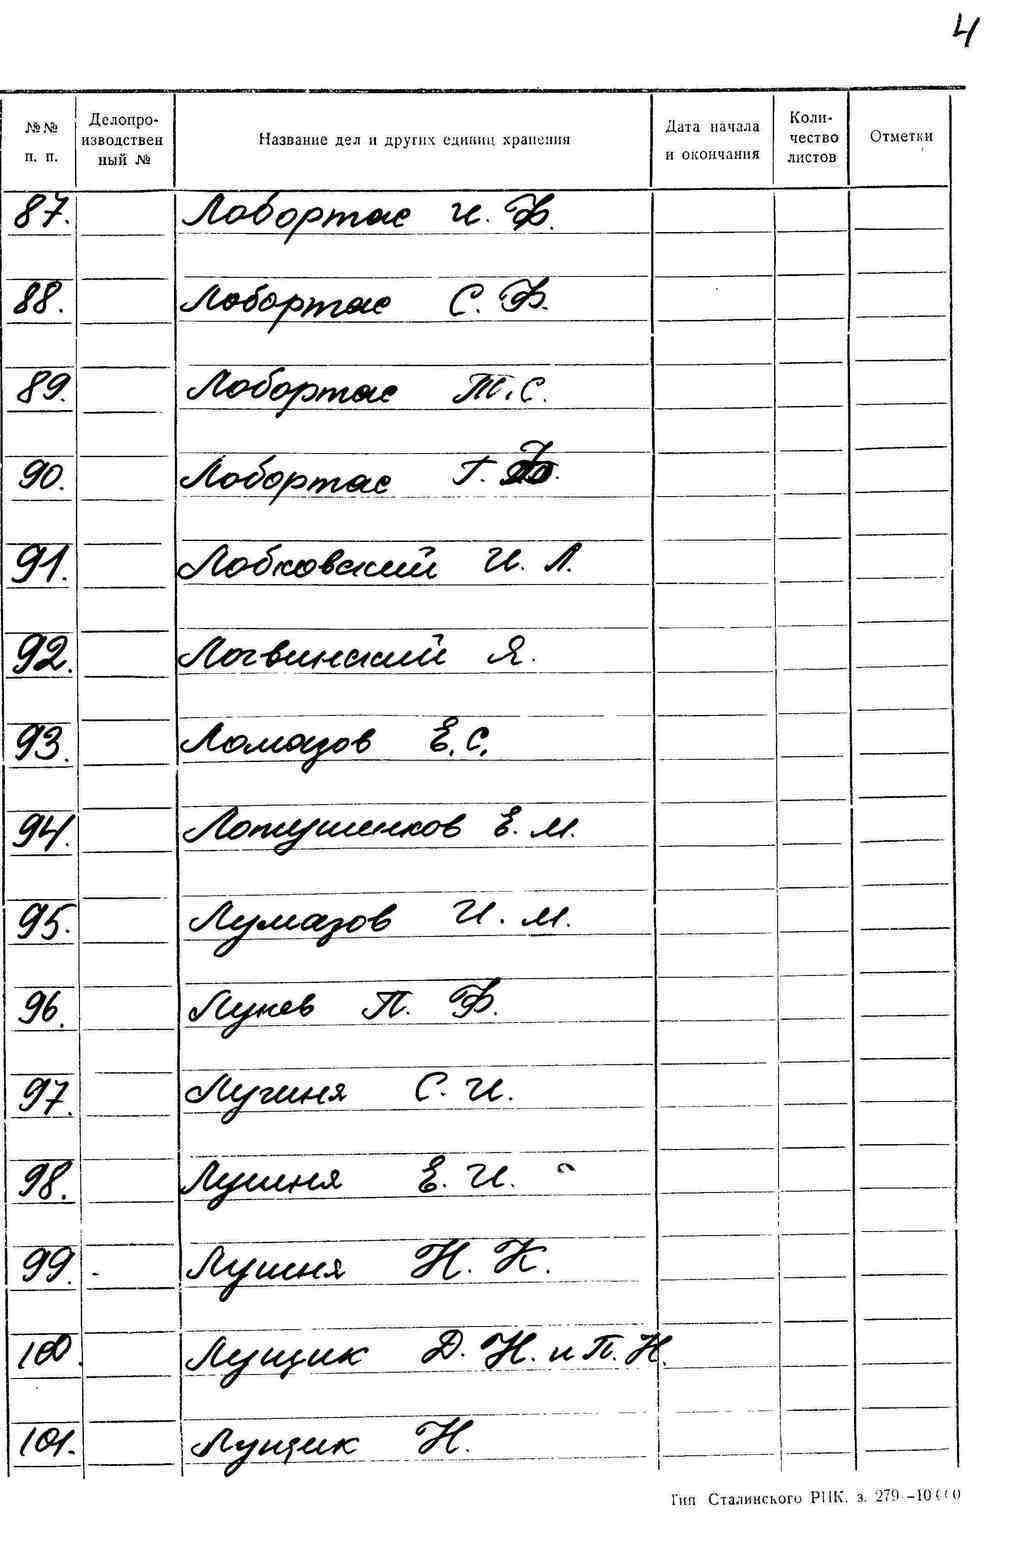 4
№№ п. п. Делопро-изводствен ный № Название дел и других единиц хранения Дата начала и окончания Коли-чество листов Отметки
87. Лобортас И. Ф.
88. Лобортас С. Ф.
89. Лобортас Т. С.
90. Лобортас Г. Ф.
91. Лобковский И. Л.
92. Логвинский Я.
93. Ломазов Е. С.
94. Лотушенков Е. М.
95. Лумазов И. М.
96. Лунев П. Ф.
97. Лучиня С. И.
98. Лушня Е. И.
99. Лушня Н. К.
100. Лущик Д. Н. и П. Н.
101. Лущик Н.
Тип Сталинского РПК. з. 279 -10000